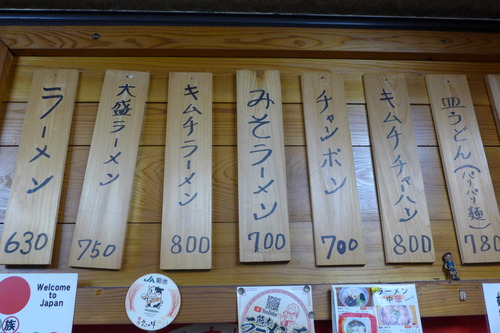 ラーメン
630
大盛ラーメン
750
キムチラーメン
800
みそラーメン
700
チャンポン
700
キムチチャーハン
800
皿うどん(パリパリ麺)
780
Welcome
to
Japan
族
JA菊池
ラーメン